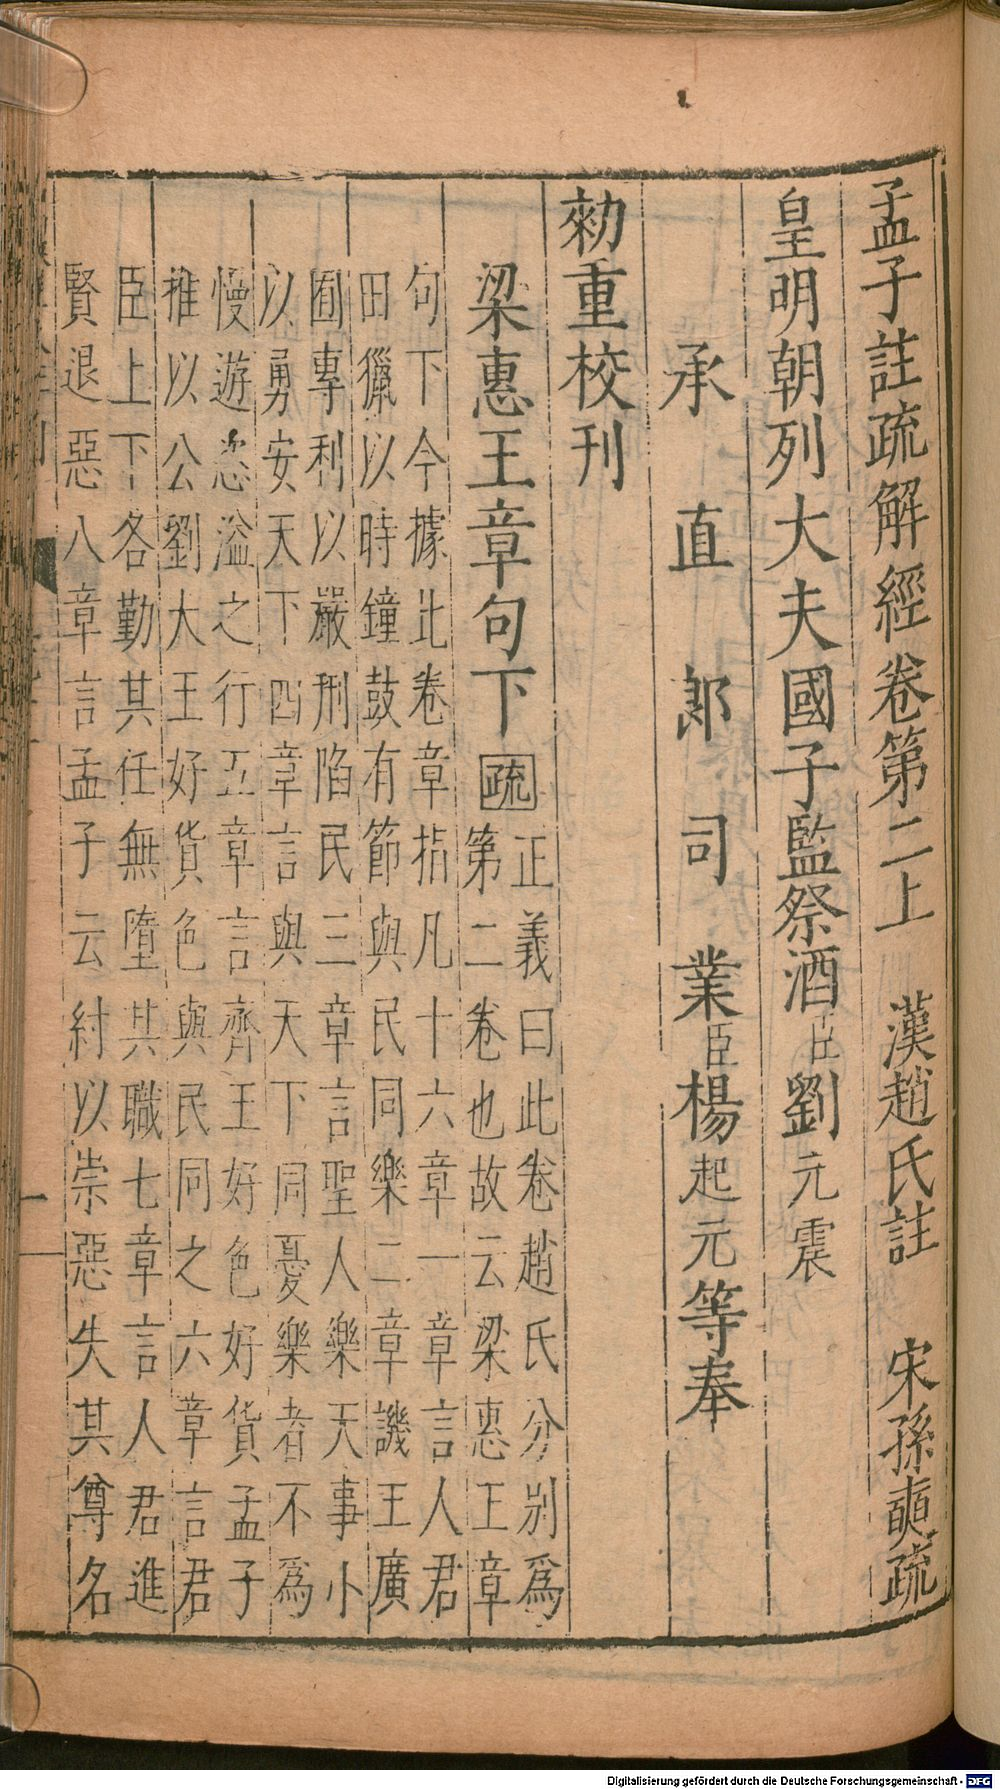 孟子註疏解經卷第二上　漢趙氏註　宋孫奭疏
皇明朝列大夫國子監祭酒臣劉元震
承直郎司業臣楊起元等奉
勑重校刊
梁惠王章句下疏
正義曰此卷趙氏分別為
第二卷也故云梁惠王章
句下今據此卷章指凡十六章一章言人君
田獵以時鐘鼓有節與民同樂二章譏王廣
囿專利以嚴刑陷民三章言聖人樂天事小
以勇安天下四章言與天下同憂樂者不為
慢遊恣溢之行五章言齊王好色好貨孟子
推以公劉大王好貨色與民同之六章言君
臣上下各勤其任無墮其職七章言人君進
賢退惡八章言孟子云紂以崇惡失其尊名
Digitalisierung gefördert durch die Deutsche Forschungsgemeinschaft - DFG